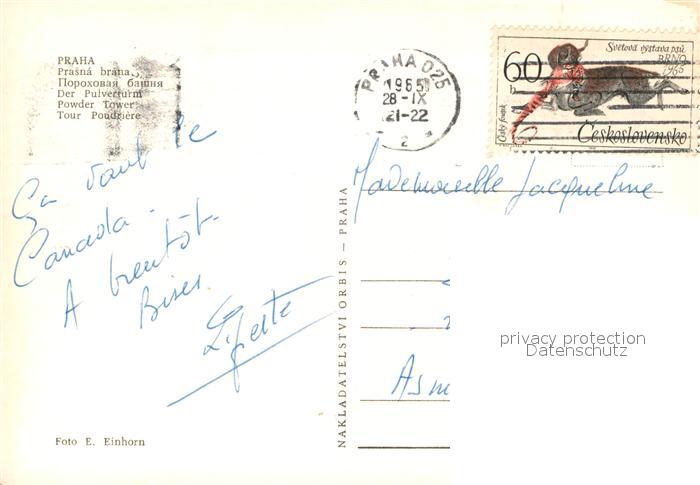 PRAHA
Prašná brána
Пороховая башня
Der Pulverturm
Powder Tower
Tour Poudrière
PRAHA 025
1965
28-IX
21-22
2
60
h
Světová výstava psů
BRNO
1965
Český fousek
Československo
Ça vaut le
Canada.
A bientôt.
Bises
Mademoiselle Jacqueline
Asn
NAKLADATELSTVÍ ORBIS — PRAHA
privacy protection
Datenschutz
Foto E. Einhorn